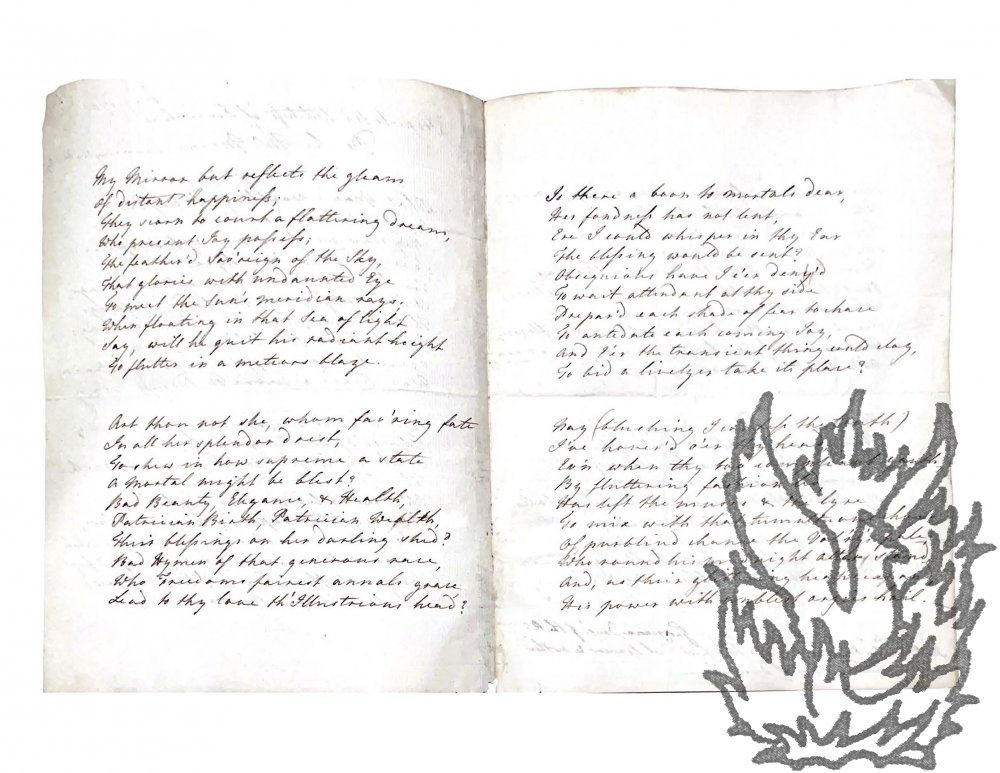 My Mirror but reflects the gleam
of distant happiness;
They scorn to court a flattering dream,
Who present Joy possess;
The feather'd Sov'reign of the Sky,
That glories with undaunted Eye
To meet the Sun's meridian rays;
When floating in that Sea of light
Say, will he quit his radiant height
To flutter in a meteors blaze.
Art thou not she, whom fav'ring fate
In all her splendor drest,
To shew in how supreme a state
A mortal might be blest?
Bad Beauty, Elegance, & Health,
Patrician Birth, Patrician Wealth,
Their blessings on her darling shed?
Bad Hymen of that generous race,
Who Freedoms fairest annals grace
Lead to thy love th' Illustrious head?
Is there a boon to mortals dear,
Her fondness has not lent,
Ere I could whisper in thy Ear
The blessing would be sent?
Obsequious have I e'er deny'd
To wait attendant at thy side
Prepar'd each shade of fear to chase
To antedate each coming Joy,
And e'er the transient thing could cloy,
To bid a livelyer take its place?
Nay (blushing I confess the truth)
I've hover'd o'er thy
Ev'n when thy
By fluttering fashion
Has left the muses & the lyre
To mix with that
Of purblind chance the
Who round his midnight Altars stand
And, as their
His power with